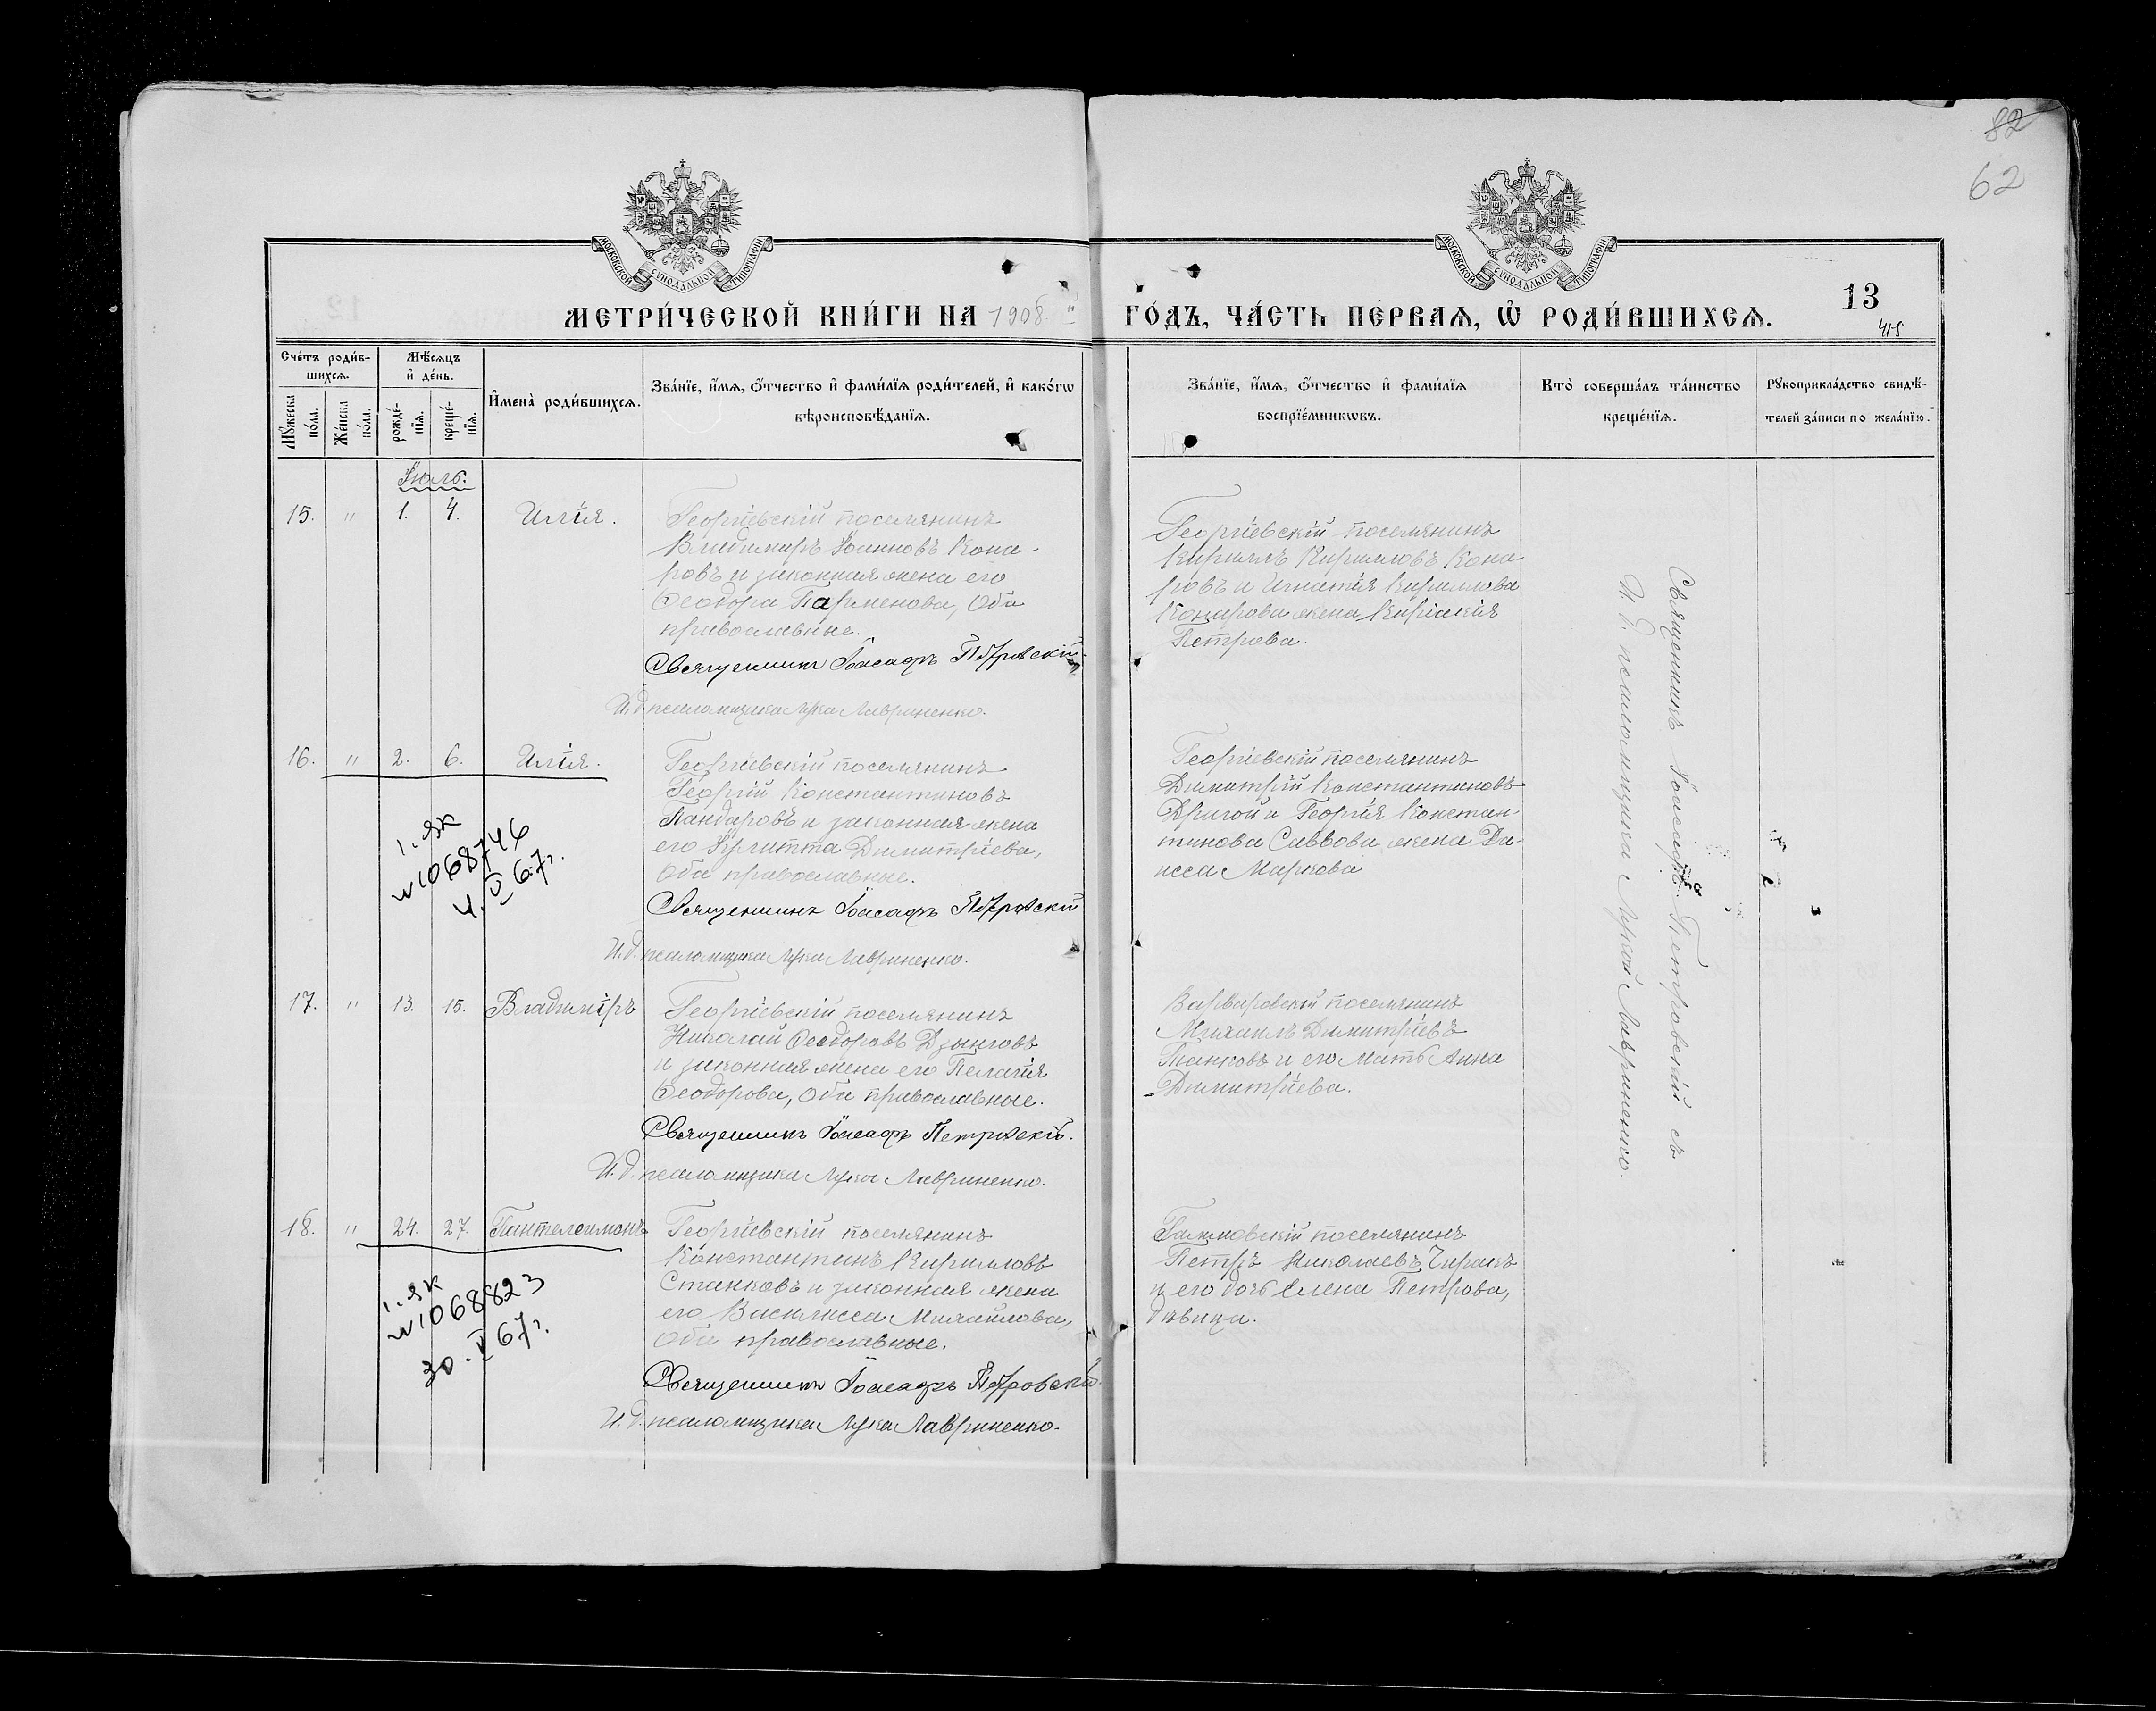 82
62
МОСКОВСКОЙ СѴНОДАЛЬНОЙ ТИПОГРАФІИ
МОСКОВСКОЙ СѴНОДАЛЬНОЙ ТИПОГРАФІИ
МЕТРИ́ЧЕСКОЙ КНИ́ГИ НА 1908 й ГО́ДЪ, ЧА́СТЬ ПЕ́РВАѦ, Ѡ҆ РОДИ́ВШИХСѦ.
13
415
Сче́тъ роди́в-
шихсѧ.
Мѣ́сѧцъ
и҆ де́нь.
Мꙋ́жеска по́ла.
Же́нска по́ла.
рожде́-
нїѧ.
креще́-
нїѧ.
И҆мена̀ роди́вшихсѧ.
Зва́нїе, и҆́мѧ, ѻ҆́тчество и҆ фами́лїѧ роди́телей, и҆ како́гѡ
вѣроисповѣ́данїѧ.
Зва́нїе, и҆́мѧ, ѻ҆́тчество и҆ фами́лїѧ
воспрїе́мникѡвъ.
Кто̀ соверша́лъ та́инство
креще́нїѧ.
Рꙋкоприкла́дство свидѣ́-
телей за́писи по жела́нїю.
Іюль.
15. " 1. 4. Илія.
Георгіевскій поселянинъ
Владимиръ Іоанновъ Кона-
ровъ и законная жена его
Ѳеодора Парменова, оба
православные.
Священникъ Іоасафъ Петровскій
И. д. псаломщика Лука Лавриненко.
Георгіевскій поселянинъ
Кириллъ Кирилловъ Кона-
ровъ и Игнатія Кириллова
Конарова жена Киріакія
Петрова.
Священникъ Іоасафъ Петровскій съ
И. д. псаломщика Лукой Лавриненко.
16. " 2. 6. Илія.
Георгіевскій поселянинъ
Георгій Константиновъ
Пандаровъ и законная жена
его Іулитта Димитріева,
оба православные.
Священникъ Іоасафъ Петровскій
И. д. псаломщика Лука Лавриненко.
Георгіевскій поселянинъ
Димитрій Константиновъ
Другой и Георгія Констан-
тинова Саввова жена
Маркова
1. ЯК
№1068746
4. V 67г.
17. " 13. 15. Владиміръ
Георгіевскій поселянинъ
Николай Ѳеодоровъ Дзынговъ
и законная жена его Пелагія
Ѳеодорова, оба православные.
Священникъ Іоасафъ Петровскій.
И. д. псаломщика Лука Лавриненко.
Варваровскій поселянинъ
Михаилъ Димитріевъ
Танковъ и его мать Анна
Димитріева.
18. " 24. 27. Пантелеимонъ
Георгіевскій поселянинъ
Константинъ Кирилловъ
Станковъ и законная жена
его Василисса Михайлова,
оба православные.
Священникъ Іоасафъ Петровскій.
И. д. псаломщика Лука Лавриненко.
поселянинъ
Петръ Николаевъ Чиракъ
и его дочь Елена Петрова,
дѣвица.
1. ЯК
№1068823
30. V 67г.